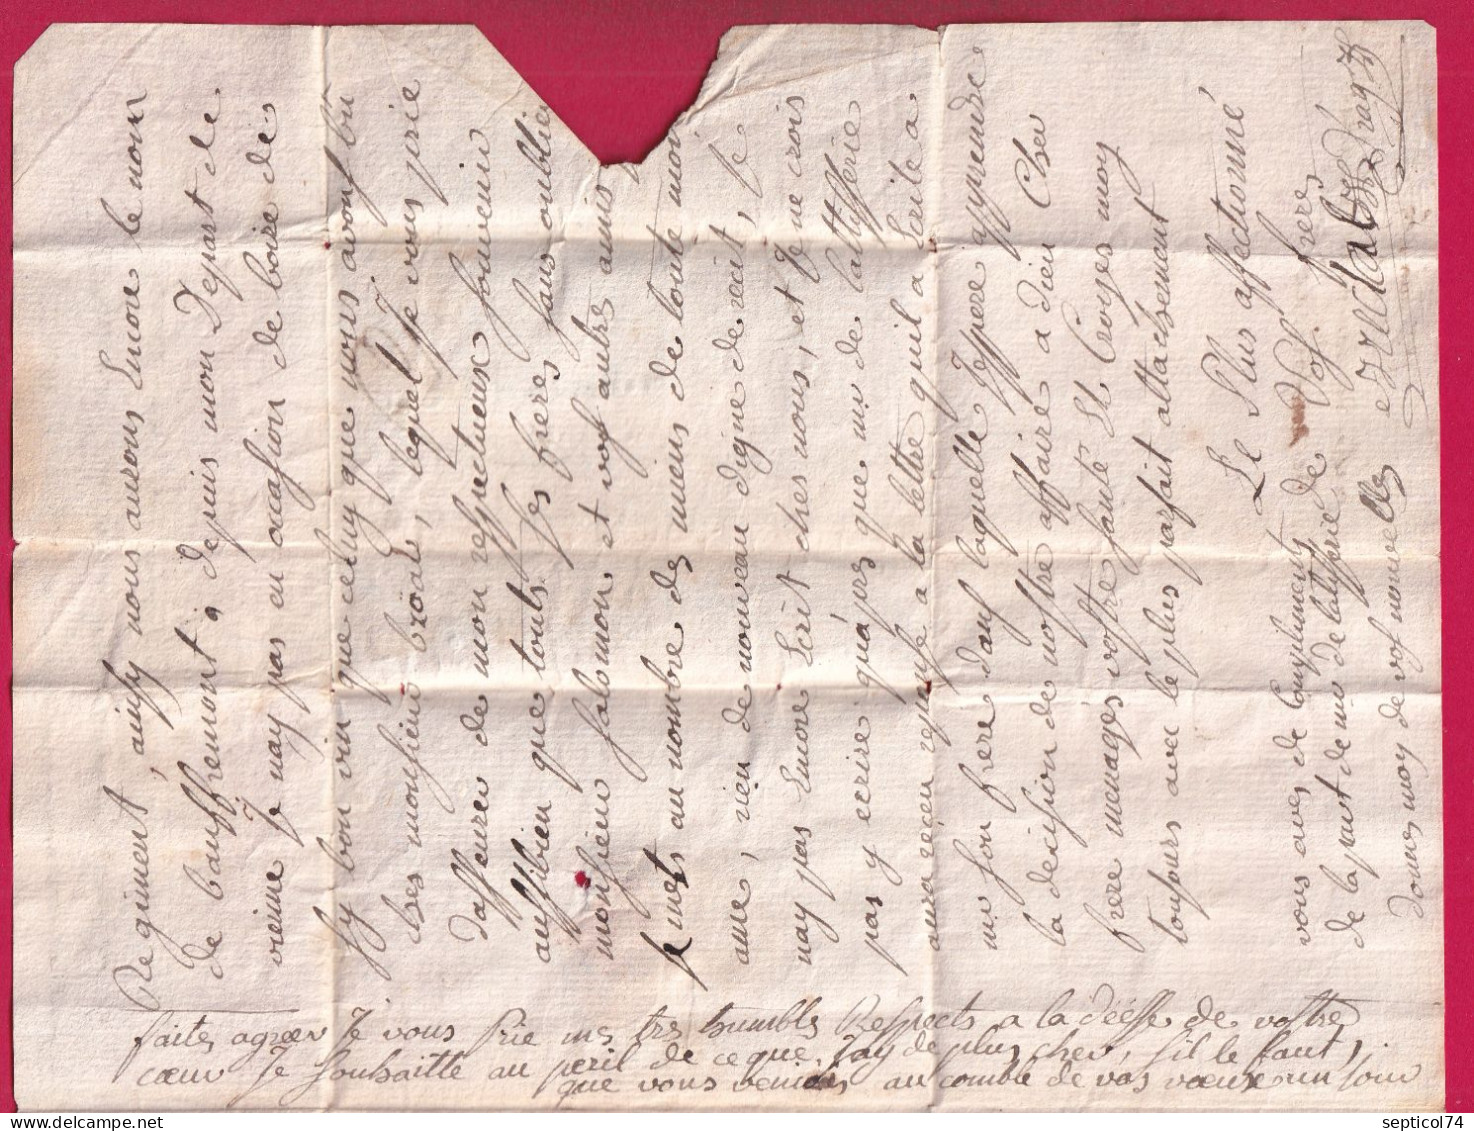 Regiment, aussy nous aurons Encore le nom
de bauffremont, depuis mon Depart de
vienne Je nay pas eu occasion de boire de
sy bon vin que celuy que nous avons bu
ches monsieur brocat, lequel Je vous prie
dassurer de mon respectueux souvenir
aussibien que touts ses freres sans oublier
monsieur salomon et vos autre amis
Je mets au nombre des miens de toute mon
ame, rien de nouveau digne de recit, Je
nay pas Encore Ecrit ches nous, et Je ne crois
pas y ecrire quápres que mr de lattefferie
aura recu reponse a la lettre quil a Ecrite a
mr son frere dans laquelle J'espere apprendre
la decision de nostre affaire a dieu Cher
frere menagés vostre santé Et Croyes moy
toujours avec le plus parfait attachement
Le Plus affectionné
de Vos freres
vous aves de Compliments
de la part de mr de latefferie
donnes moy de vos nouvelles
faites agreer Je vous Prie mes tres humbles Respects a la déesse de vostre
cœur Je souhaitte au peril de ce que Jay de plus cher, sil le faut,
que vous venies au comble de vos vœux un jour
septicol74